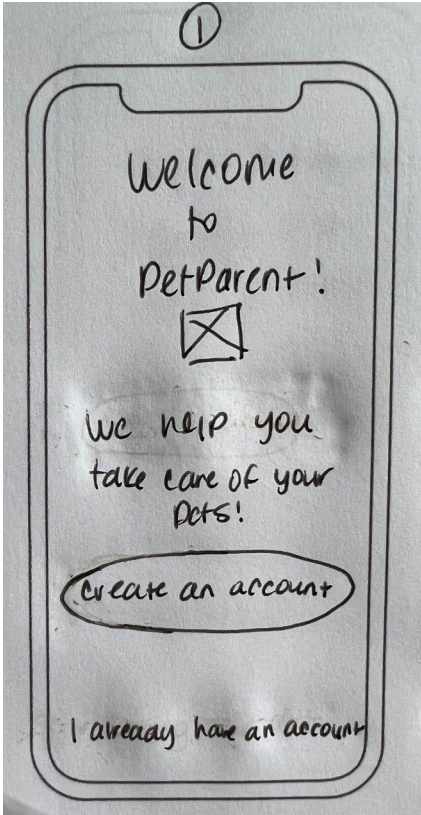 1
Welcome
to
PetParent!
We help you
take care of your
pets!
Create an account
I already have an account